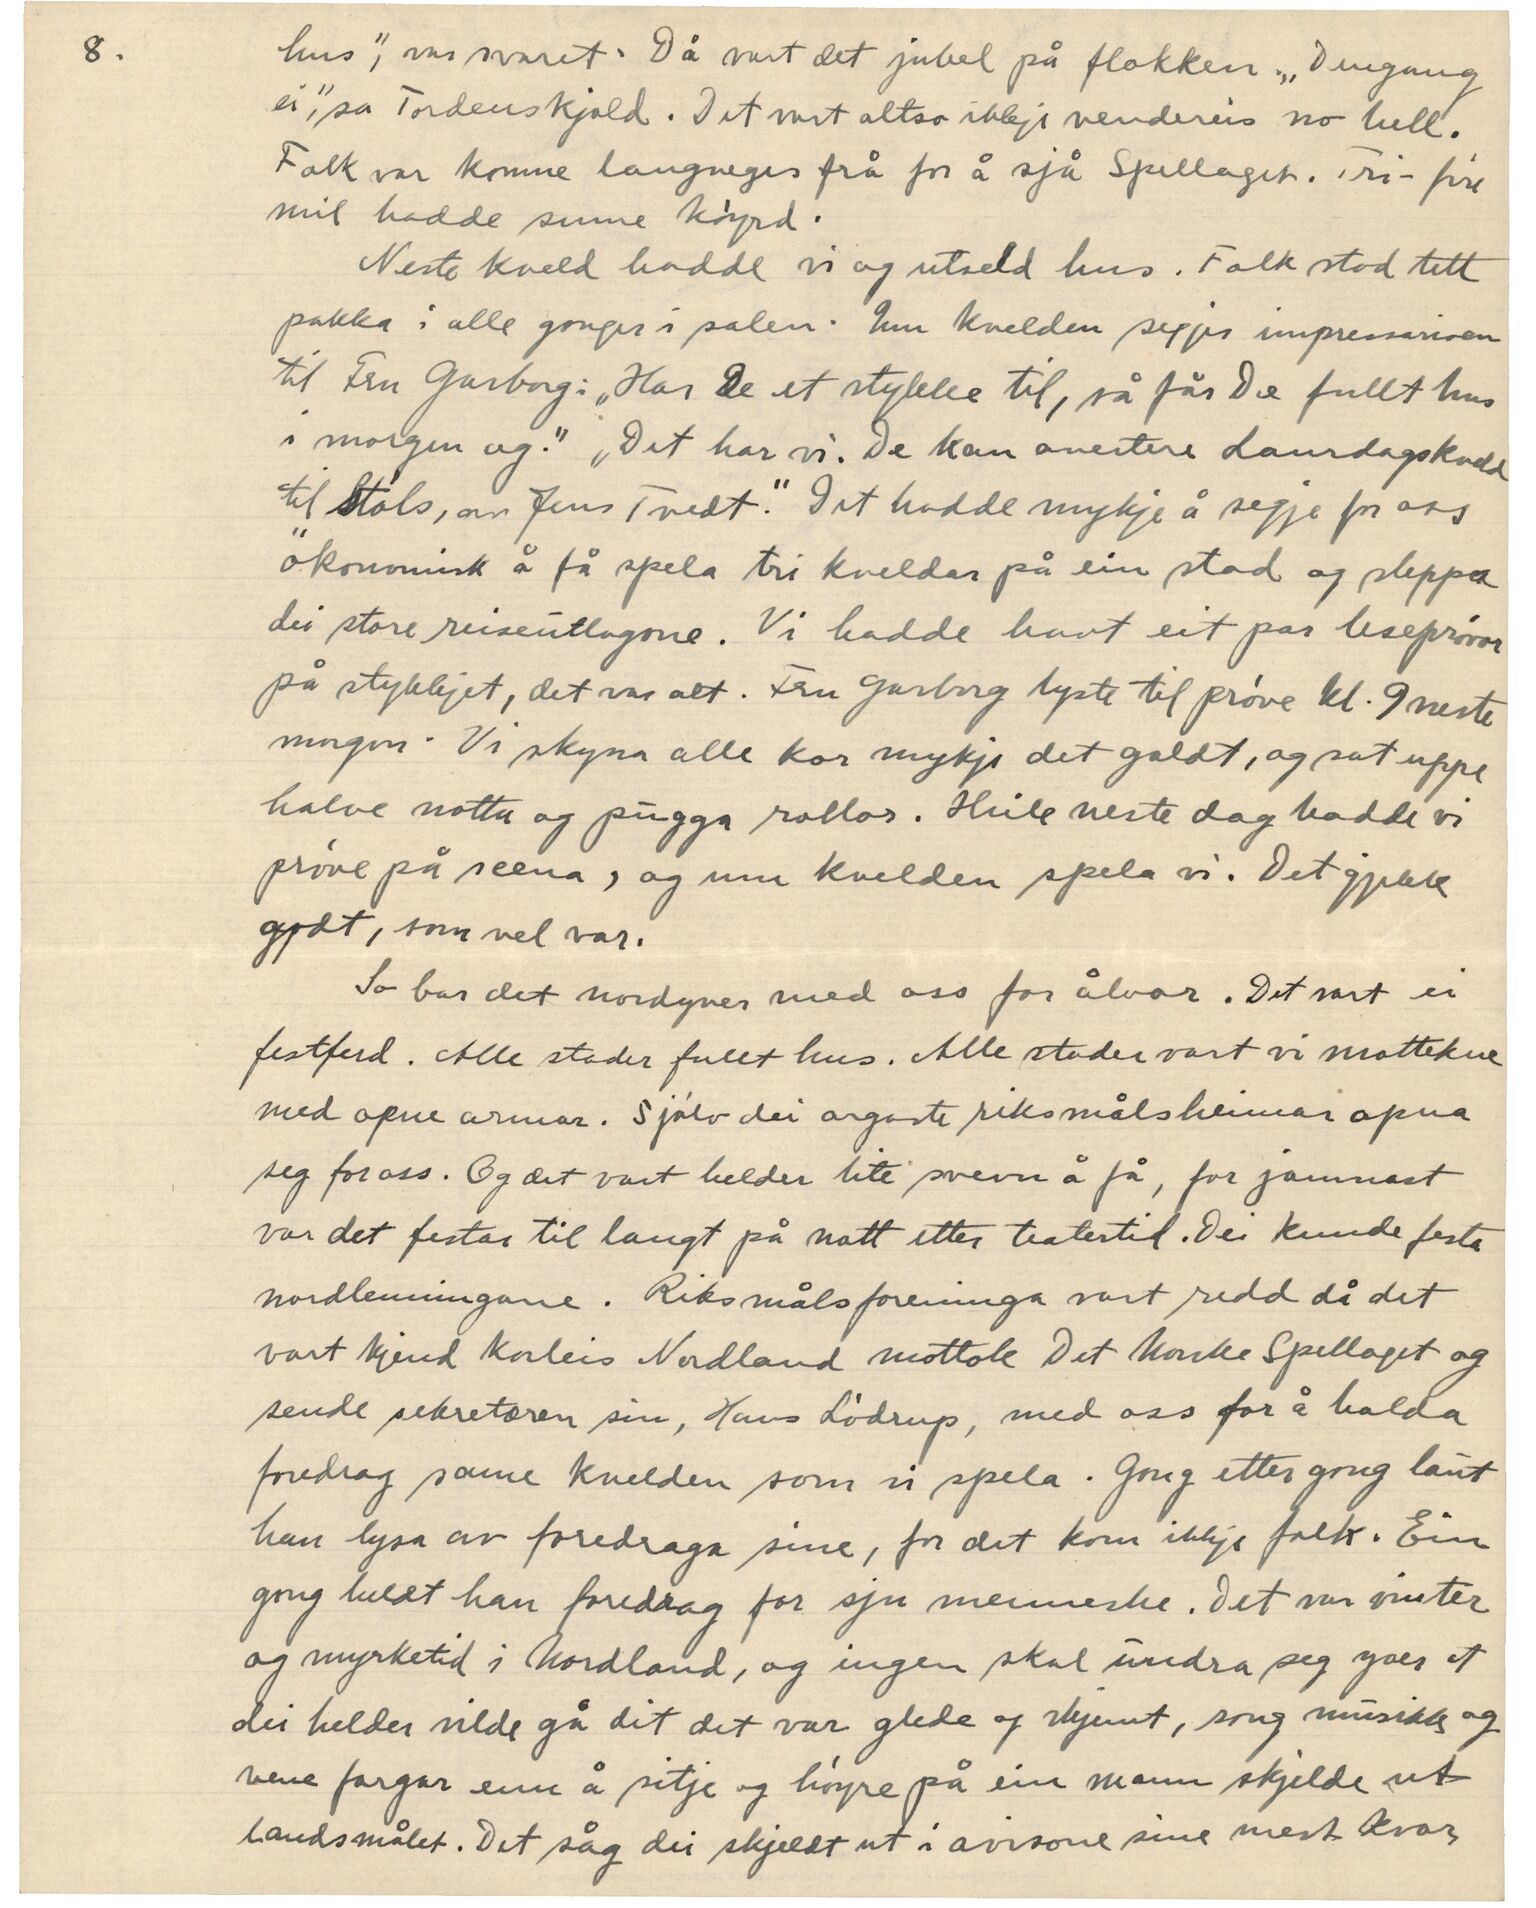 8.
hus", var svaret. Då vart det jubel på flokken. "Dengang
ei", sa Tordenskjold. Det vart altso ikkje vendereis no hell.
Folk var komne langveges frå for å sjå Spellaget. Tri-fire
mil hadde sume köyrd.
Neste kveld hadde vi og utseld hus. Folk stod tett
pakka i alle gonger i salen. Um kvelden segjer impressarioen
til Fru Garborg: "Har De et stykke til, så får De fullt hus
i morgen og." "Det har vi. De kan avertere Laurdagskveld
til Støls, av Jens Tvedt." Det hadde mykje å segje for oss
ökonomisk å få spela tri kveldar på ein stad og sleppa
dei store reiseutlogone. Vi hadde havt eit par leseprövor
på stykkjet, det var alt. Fru Garborg lyste til pröve kl. 9 neste
morgon. Vi skyna alle kor mykje det galdt, og sat uppe
halve notta og pugga rollor. Heile neste dag hadde vi
pröve på scena, og um kvelden spela vi. Det gjekk
godt, som vel var.
So bar det nordyver med oss for ålvor. Det vart ei
festferd. Alle stader fullt hus. Alle stader vart vi mottekne
med opne armar. Sjölv dei argaste riksmålsheimar opna
seg for oss. Og det vart helder lite svevn å få, for jamnast
var det festar til langt på natt etter teatertid. Dei kunde festa
nordlenningane. Riksmålsforeninga vart redd då det
vart kjend korleis Nordland mottok Det Norske Spellaget og
sende sekretæren sin, Hans Lödrup, med oss for å halda
foredrag same kvelden som vi spela. Gong etter gong laut
han lysa av foredraga sine, for det kom ikkje folk. Ein
gong heldt han foredrag for sju menneske. Det var vinter
og myrketid i Nordland, og ingen skal undra seg yver at
dei helder vilde gå dit det var glede og skjemt, song musikk og
vene fargar enn å sitje og höyre på ein mann skjelde ut
landsmålet. Det såg dei skjeldt ut i avisone sine mest kvar